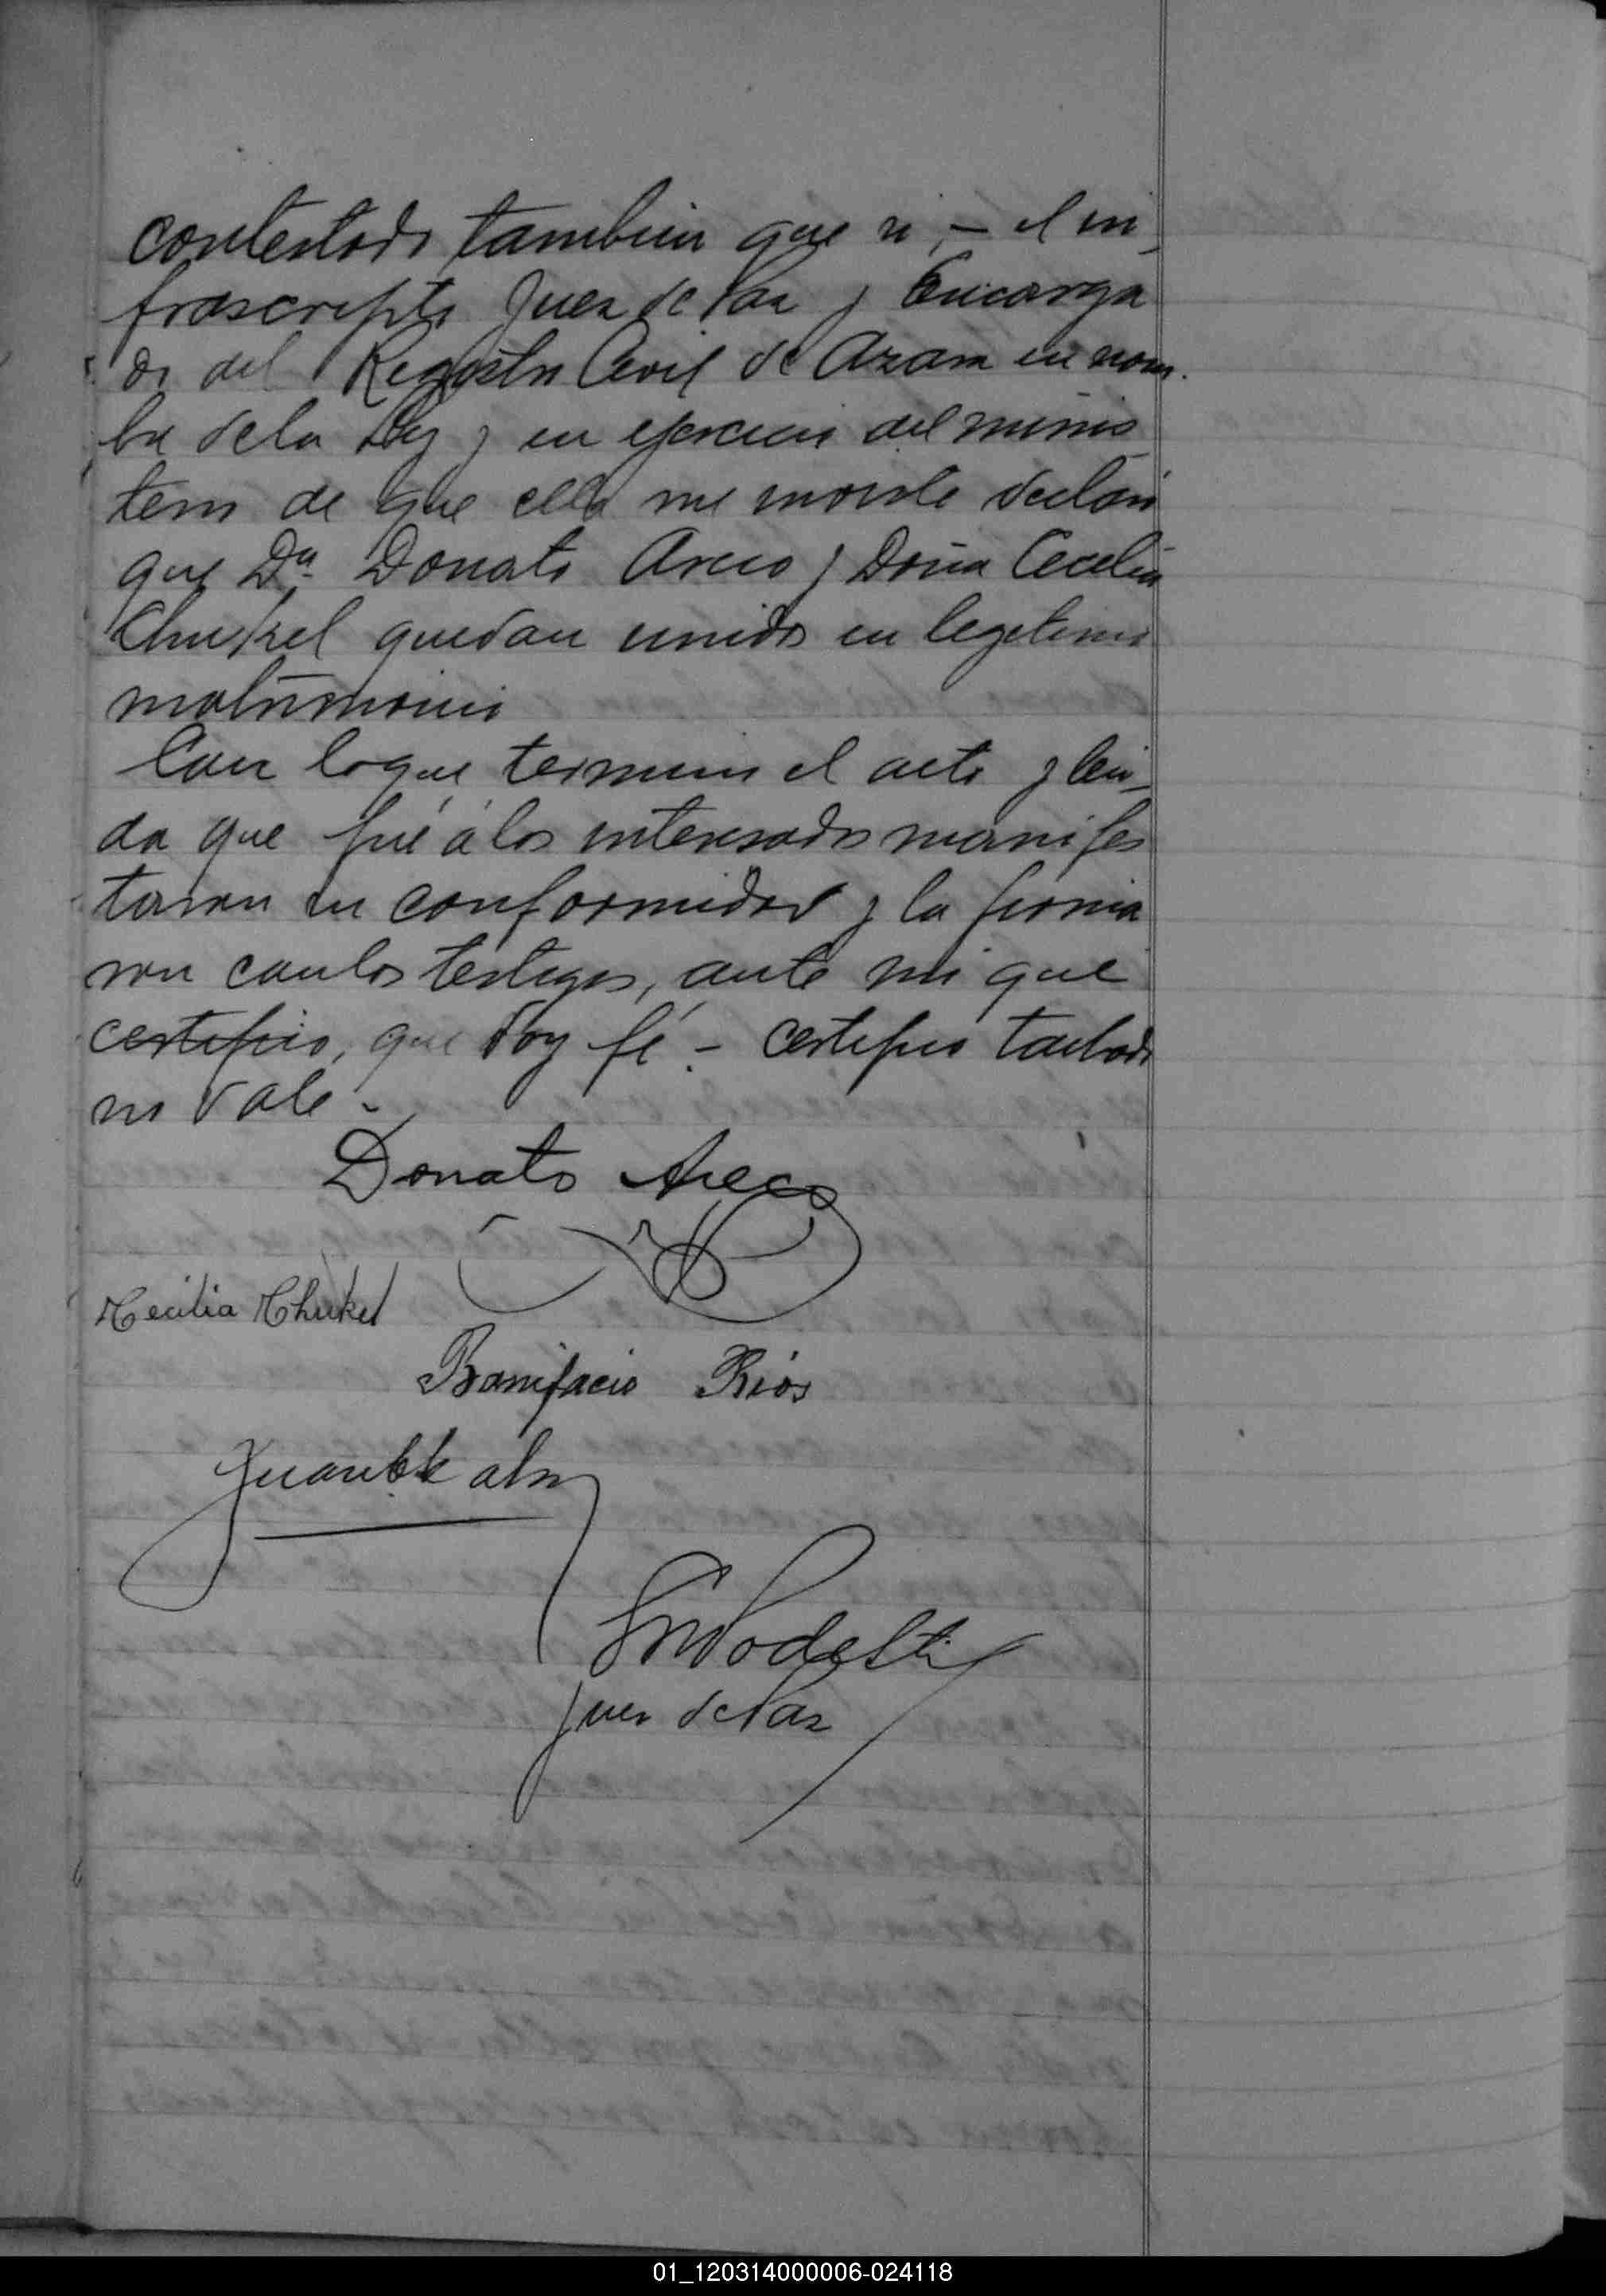 contestado tambien que si, – el in-
frascripto Juez de Paz y Encarga
do del Registro Civil de Azara en nom-
bre de la Ley y en ejercicio del minis
terio de que ella me inviste declaro
que Dn. Donato Areco y Doña Cecilia
Chukel quedan unidos en legitimo
matrimonio
Con lo que termino el acto y lei-
da que fué á los interesados manifes
taron su conformidad y la firma
ron con los testigos, ante mi que
certifico, que doy fé. – certifico tachado
no vale –
Donato Areco
Cecilia Chukel
Bonifacio Rios
Podesti
Juez de Paz
01_120314000006-024118